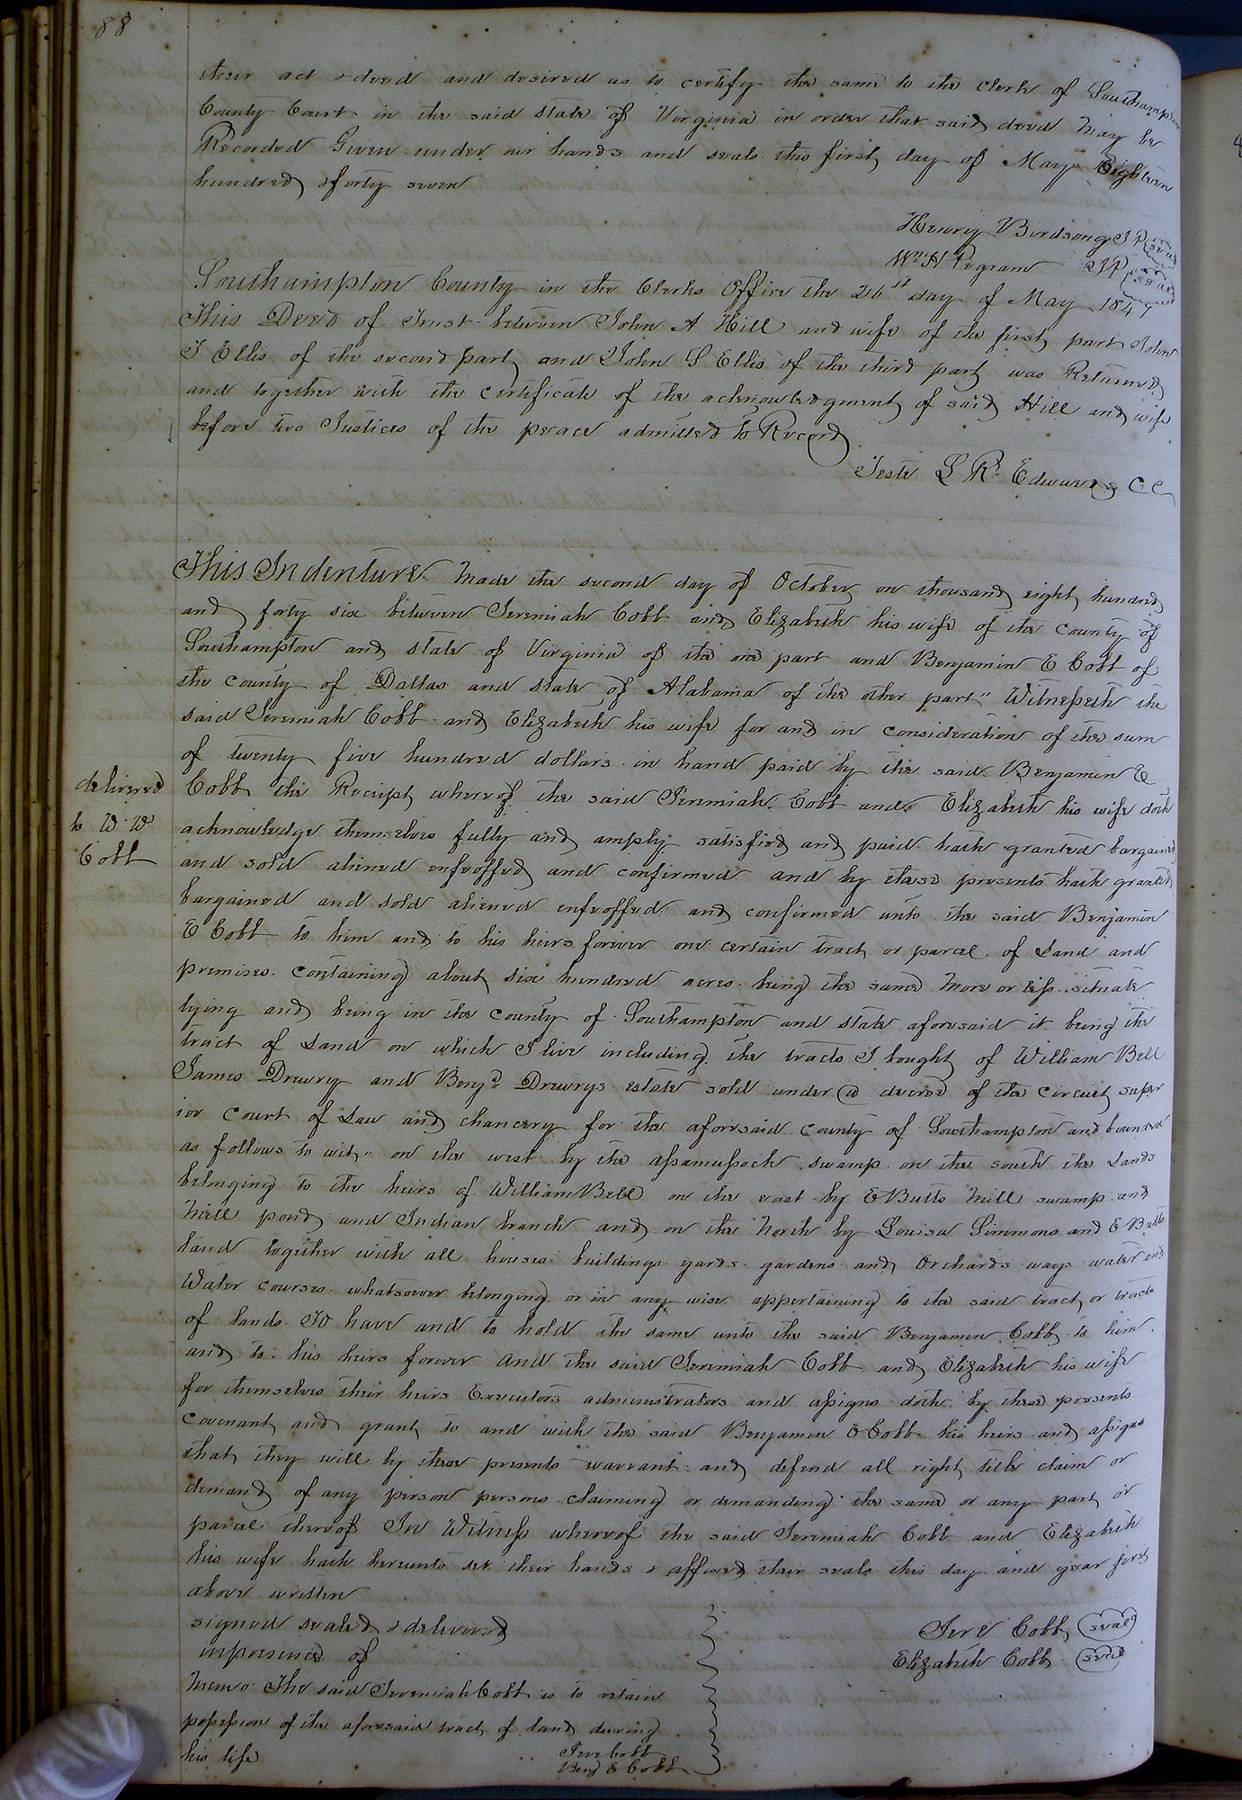 88
their act & deed and desired us to certify the same to the Clerk of Southampton
County Court in the said state of Virginia in order that said deed may be
Recorded Given under our hands and seals this first day of May Eighteen
hundred & forty seven
Henry Birdsong J P seal
Wm H Pegram J P seal
Southampton County in the Clerks Office the 26st day of May 1847
This Deed of Trust between John A Hill and wife of the first part John
T Ellis of the second part and John S Ellis of the third part was Returned
and together with the certificate of the acknowledgment of said Hill and wife
before two Justices of the peace admitted to Record
Teste L R Edwards C C
This Indenture made the second day of October on thousand eight hundred
and forty six between Jeremiah Cobb and Elizabeth his wife of the County of
Southampton and state of Virginia of the one part and Benjamin E Cobb of
the county of Dallas and state of Alabama of the other part" Witnesseth the
said Jeremiah Cobb and Elizabeth his wife for and in consideration of the sum
of twenty five hundred dollars in hand paid by the said Benjamin E
delivered
to W W
Cobb
Cobb the Receipt whereof the said Jeremiah Cobb and Elizabeth his wife doth
acknowledge themselves fully and amply satisfied and paid hath granted bargained
and sold aliened enfeoffed and confirmed and by these presents hath granted
bargained and sold aliened enfeoffed and confirmed unto the said Benjamin
E Cobb to him and to his heirs forever one certain tract or parcel of Land and
premises containing about six hundred acres being the same more or less situate
lying and being in the county of Southampton and state aforesaid it being the
tract of Land on which I live including the tracts I bought of William Bell
James Drewry and Benjn Drewrys estate sold under a decree of the circuit super
ior Court of Law and chancery for the aforesaid county of Southampton and bounded
as follows to wit" on the west by the assamussock swamp on the south the Lands
belonging to the heirs of William Bell on the east by E Butts Mill swamp and
Mill pond and Indian branch and on the North by Louisa Simmons and E Butts
land together with all houses buildings yards gardens and Orchards ways water and
Water courses whatsoever belonging or in any wise appertaining to the said tract or tracts
of lands To have and to hold the same unto the said Benjamin Cobb to him
and to his heirs forever And the said Jeremiah Cobb and Elizabeth his wife
for themselves their heirs Executors administrators and assigns doth by these presents
covenant and grant to and with the said Benjamin E Cobb his heirs and assigns
that they will by these presents warrant and defend all right title claim or
demand of any person persons claiming or demanding the same or any part or
parcel thereof In Witness whereof the said Jeremiah Cobb and Elizabeth
his wife hath hereunto set their hands & affixed their seals this day and year first
above written
signed sealed & delivered
in presence of
Jere Cobb seal
Elizabeth Cobb seal
Memo The said Jeremiah Cobb is to retain
possession of the aforesaid tract of land during
his life
Jere Cobb
Benj E Cobb